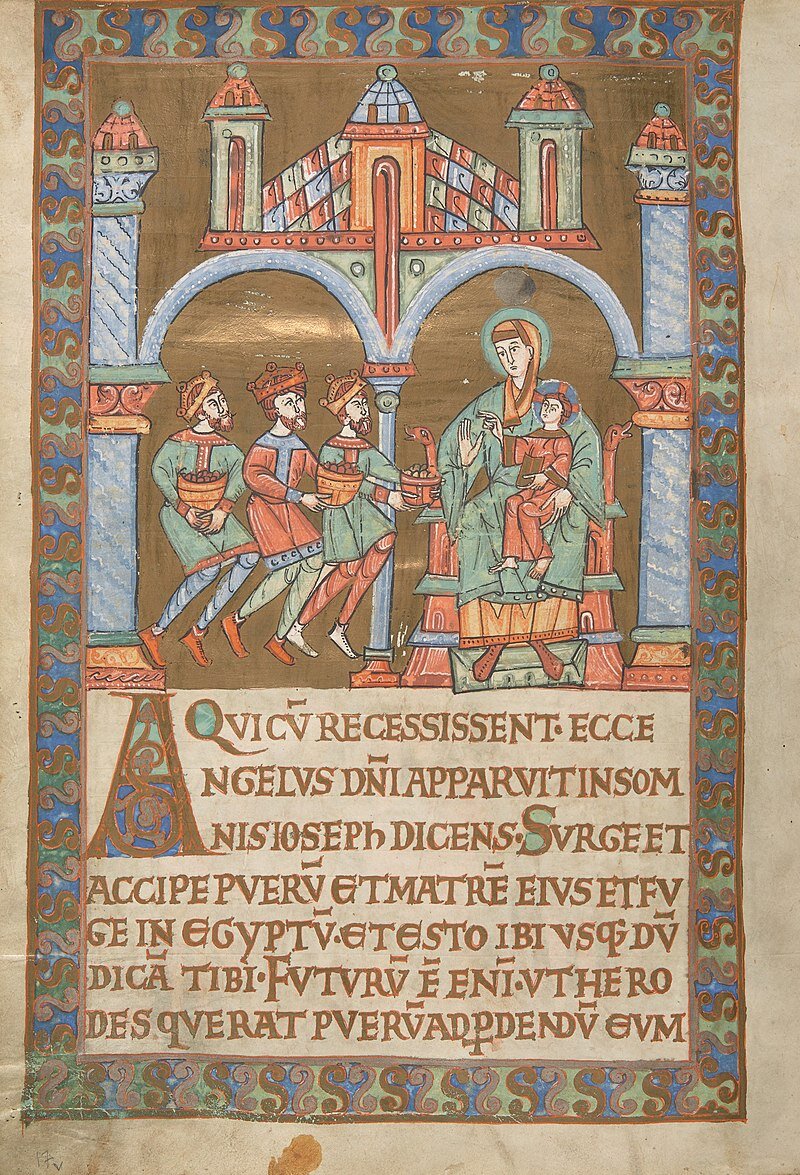 QVI CV̄ RECESSISSENT· ECCE
ANGELVS DN̄I APPARVIT IN SOM
NIS IOSEPh DICENS· SVRGE ET
ACCIPE PVERV̄ ET MATRĒ EIVS ET FV
GE IN EGYPTV̄· ET ESTO IBI VSQ̨ DV̄
DICĀ TIBI· FVTVRV̄ Ē ENĪ· VT HERO
DES QVERAT PVERV̄ AD ꝑDENDV̄ EVM